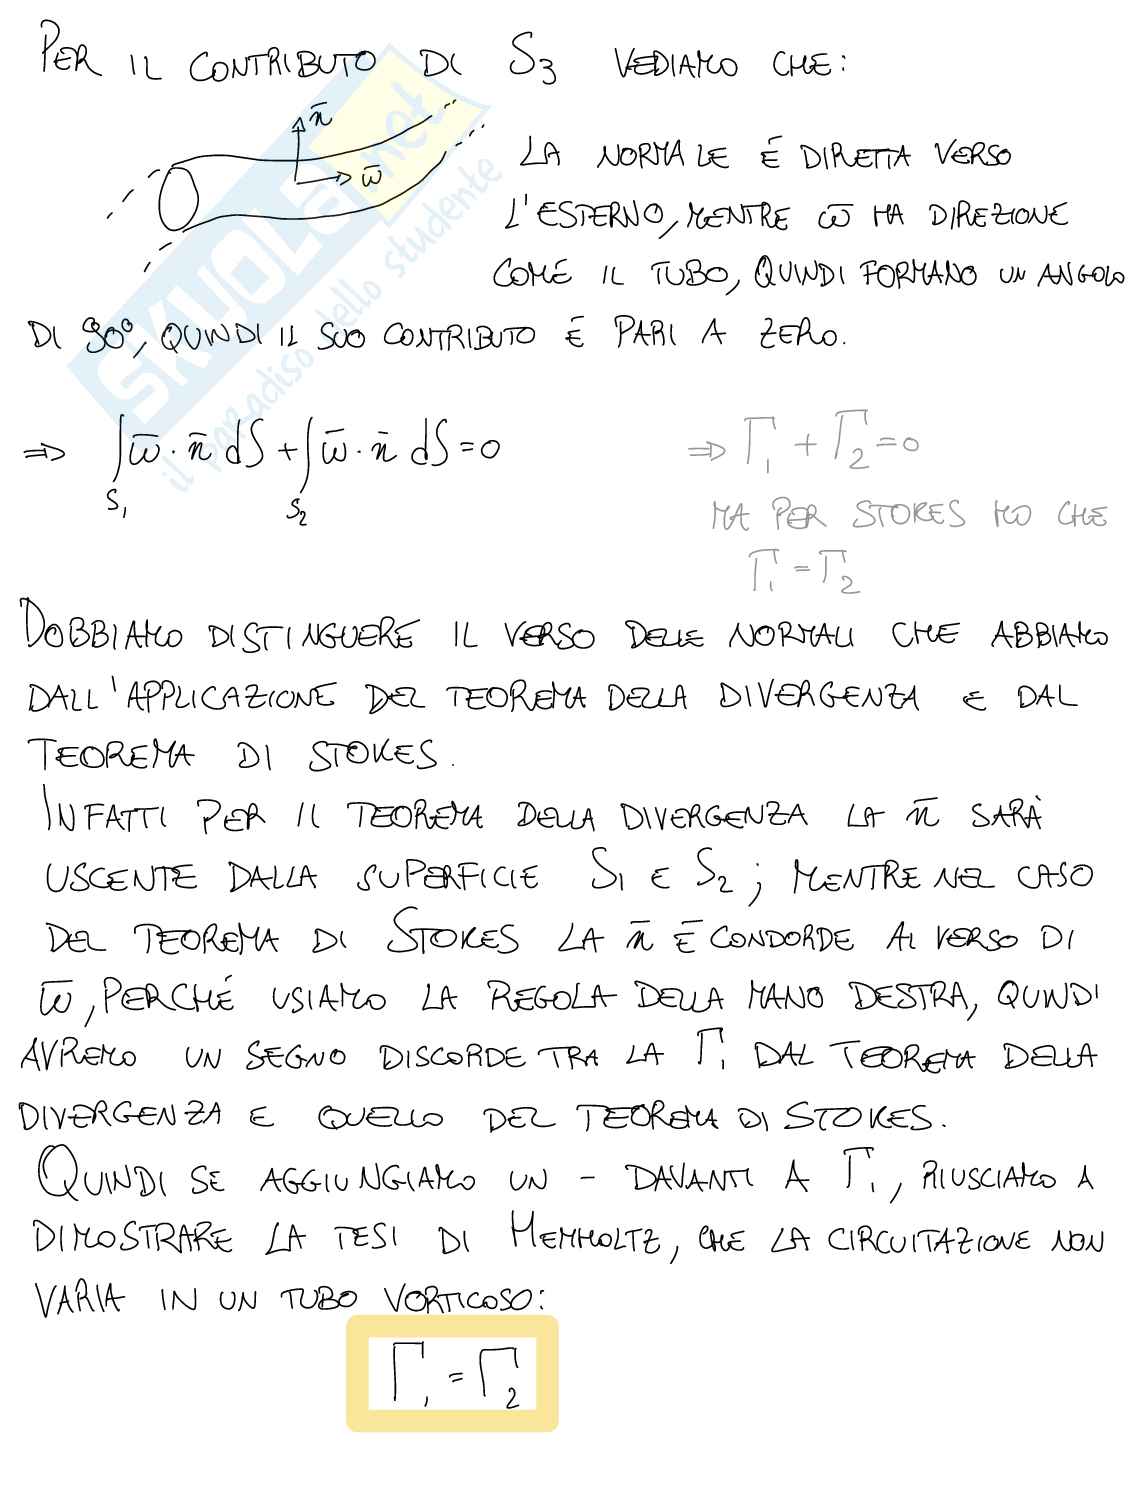 PER IL CONTRIBUTO DI S3 VEDIAMO CHE:
n̄
ω̄
LA NORMALE È DIRETTA VERSO
L'ESTERNO, MENTRE ω̄ HA DIREZIONE
COME IL TUBO, QUINDI FORMANO UN ANGOLO
DI 90°, QUINDI IL SUO CONTRIBUTO È PARI A ZERO.
⇒ ∫S1 ω̄ · n̄ dS + ∫S2 ω̄ · n̄ dS = 0
⇒ Γ1 + Γ2 = 0
MA PER STOKES HO CHE
Γ1 = Γ2
DOBBIAMO DISTINGUERE IL VERSO DELLE NORMALI CHE ABBIAMO
DALL'APPLICAZIONE DEL TEOREMA DELLA DIVERGENZA E DAL
TEOREMA DI STOKES.
INFATTI PER IL TEOREMA DELLA DIVERGENZA LA n̄ SARÀ
USCENTE DALLA SUPERFICIE S1 E S2; MENTRE NEL CASO
DEL TEOREMA DI STOKES LA n̄ È CONDORDE AL VERSO DI
ω̄, PERCHÉ USIAMO LA REGOLA DELLA MANO DESTRA, QUNDI
AVREMO UN SEGNO DISCORDE TRA LA Γ1 DAL TEOREMA DELLA
DIVERGENZA E QUELLO DEL TEOREMA DI STOKES.
QUINDI SE AGGIUNGIAMO UN - DAVANTI A Γ1, RIUSCIAMO A
DIMOSTRARE LA TESI DI HEMHOLTZ, CHE LA CIRCUITAZIONE NON
VARIA IN UN TUBO VORTICOSO:
Γ1 = Γ2
SKUOLA.net
il paradiso dello studente